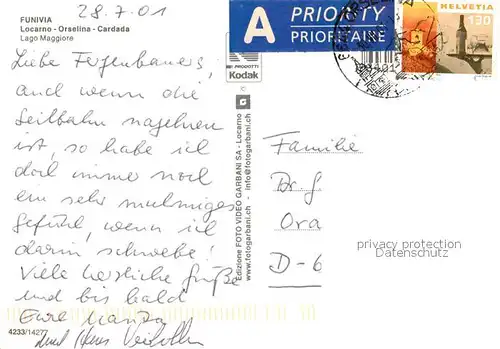 28.7.01
FUNIVIA
Locarno - Orselina - Cardada
Lago Maggiore
A PRIORITY
PRIORITAIRE
HELVETIA
130
PRODOTTI
Kodak
Edizione FOTO VIDEO GARBANI SA - Locarno
www.fotogarbani.ch - info@fotogarbani.ch
Liebe
auch wenn die
Seilbahn nagelneu
ist, so habe ich
doch immer noch
ein sehr mulmiges
Gefühl, wenn ich
darin schwebe!
Viele herzliche Grüße
und bis bald
Eure
und
Familie
Br. g
Ora
D-6
privacy protection
Datenschutz
4233/14277